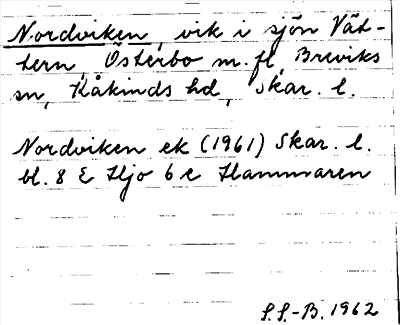 Nordviken, vik i sjön Vät-
tern, Österbo m. fl, Breviks
sn, Kåkinds hd, Skar. l.
Nordviken ek (1961) Skar. l.
bl. 8 E Hjo 6 c Hammaren
S.S.-B. 1962